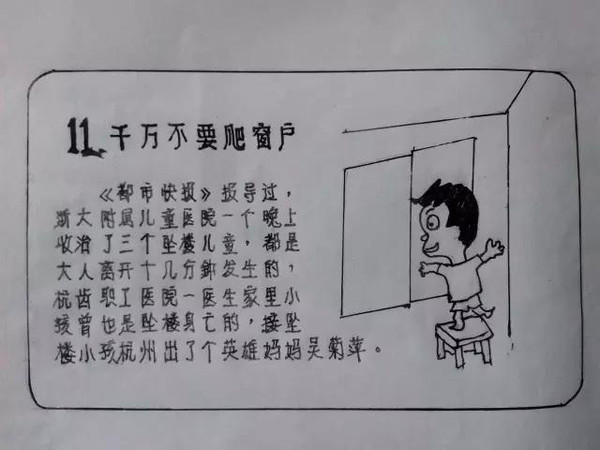 11、千万不要爬窗户
《都市快报》报导过，
浙大附属儿童医院一个晚上
收治了三个坠楼儿童，都是
大人离开十几分钟发生的，
杭齿职工医院一医生家里小
孩曾也是坠楼身亡的，接坠
楼小孩杭州出了个英雄妈妈吴菊萍。